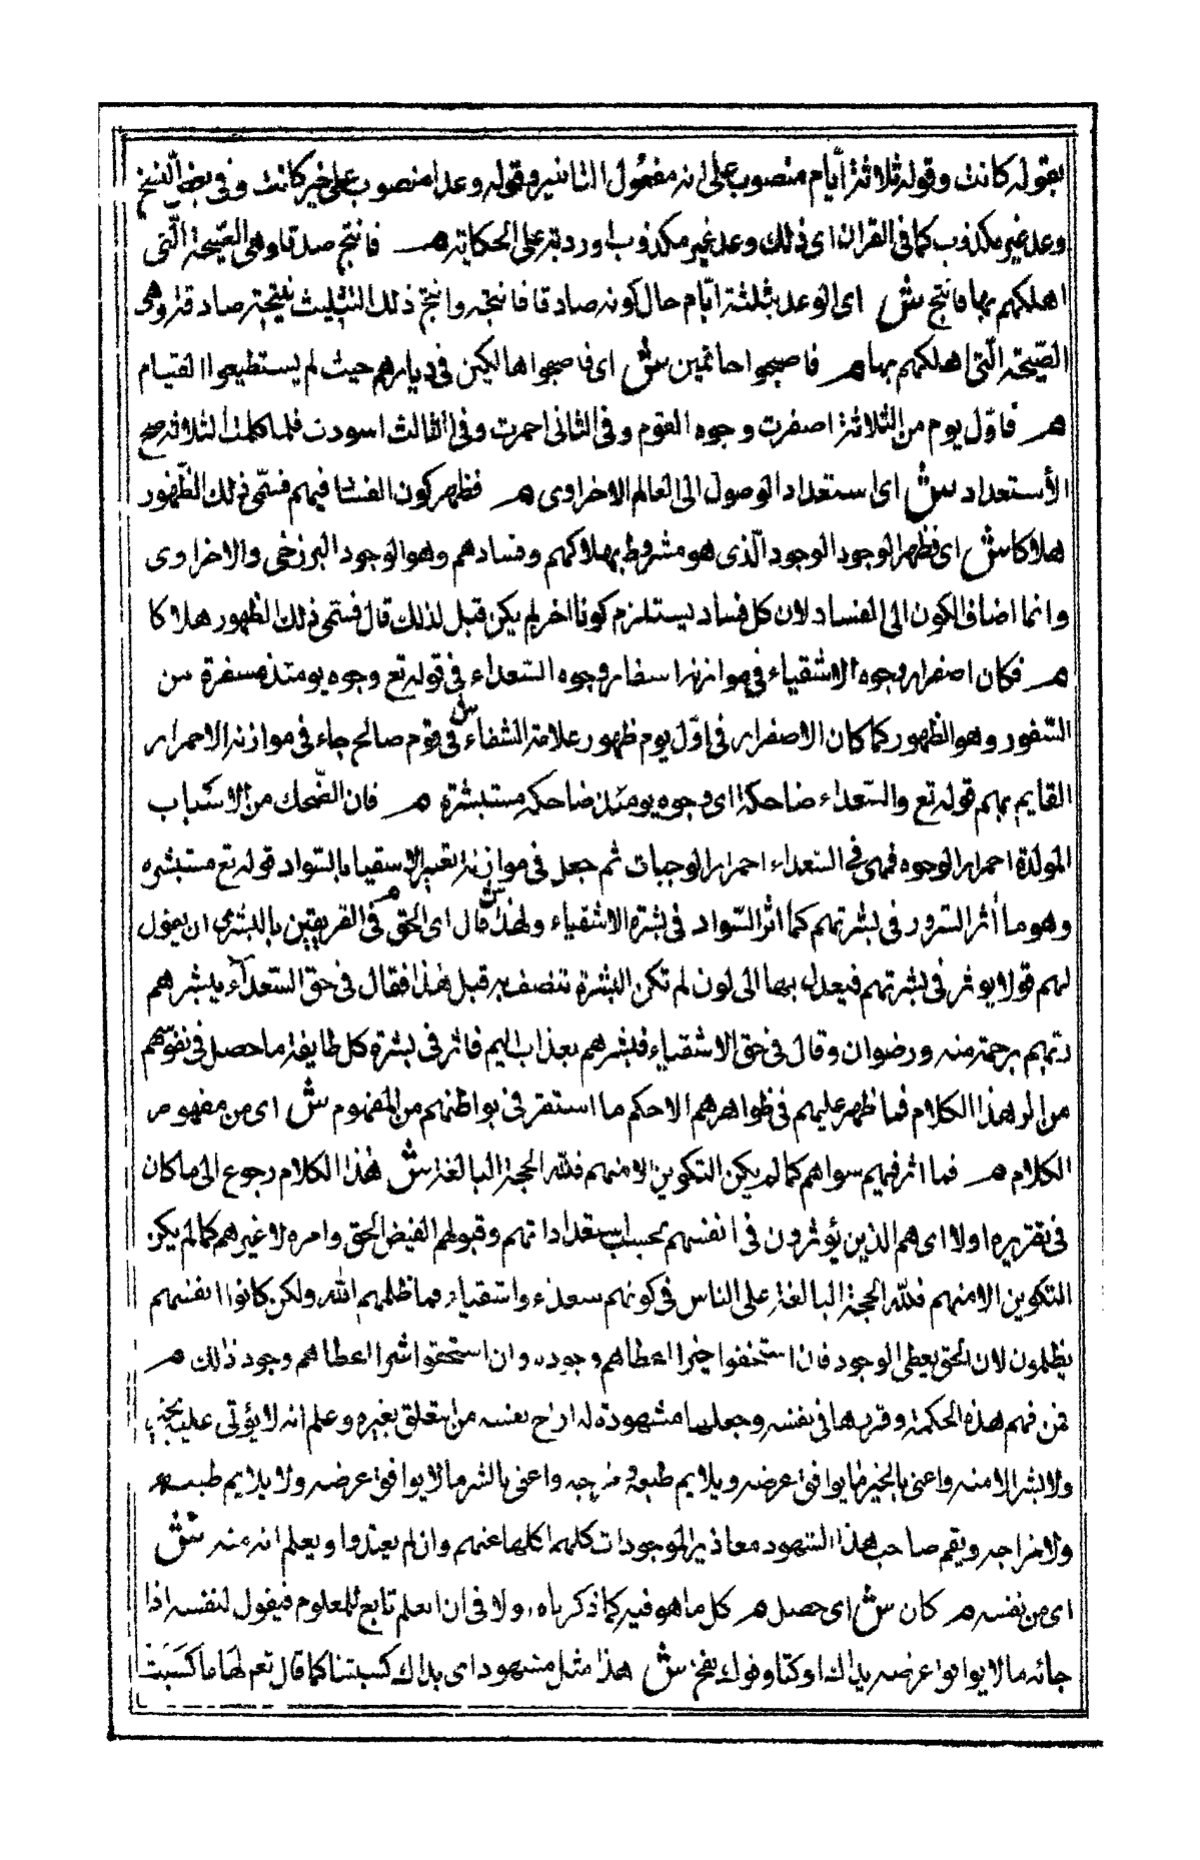 بقوله كانت وقوله ثلاثة ايّام منصوب على انه مفعول الثانية وقوله وعدا منصوب على خبر كانت وفى بعض النّسخ
وعد غير مكذوب كما فى القران اى ذلك وعد غير مكذوب اوردته على الحكاية هـ فانتج صدقا وهى الصّيحة الّتى
اهلكهم بها فانتج ش اى الوعد بثلثة ايّام حال كونه صادقا فانتجه وانتج ذلك التثليث نتيجة صادقة وهى
الصّيحة الّتى اهلكهم بها هـ فاصبحوا جاثمين ش اى فاصبحوا هالكين فى ديارهم حيث لم يستطيعوا القيام
هـ فاوّل يوم من الثلاثة اصفرت وجوه القوم وفى الثانى احمرت وفى الثالث اسودت فلما كملت الثلاثة صح
الأستعداد ش اى استعداد الوصول الى العالم الاخراوى هـ فظهر كون الفساد فيهم فسمّى ذلك الظّهور
هلاكا ش اى فظهر الوجود الوجود الّذى هو مشروط بهلاكهم وفسادهم وهو الوجود البرزخى والاخراوى
وانما اضاف الكون الى الفساد لان كل فساد يستلزم كونا اخر لم يكن قبل لذلك قال فسمّى ذلك الظهور هلاكا
هـ فكان اصفرار وجوه الاشقياء فى موازنة اسفار وجوه السّعداء فى قوله تع وجوه يومئذ مسفرة من
السّفور وهو الظهور كما كان الاصفرار فى اوّل يوم ظهور علامة الشقاء ش فى قوم صالح جاء فى موازنة الاحمرار
القايم بهم قوله تع والسّعداء ضاحكة اى وجوه يومئذ ضاحكة مستبشرة هـ فان الضّحك من الاسباب
المولدة احمرار الوجوه فهى فى السّعداء احمرار الوجنات ثم جعل فى موازنة تغيير الاشقياء بالسّواد قوله تع مستبشره
وهو ما أثر السّرور فى بشرتهم كما أثر السّواد فى بشرة الاشقياء ولهذا ش قال اى الحق هـ فى الفريقين بالبشرى ان يقول
لهم قولا يوثر فى بشرتهم فيعدل بها الى لون لم تكن البشرة تتصف به قبل هذا فقال فى حق السّعداء يبشرهم
ربّهم برحمة منه ورضوان وقال فى حق الاشقياء فبشرهم بعذاب اليم فاثر فى بشرة كل طايفة ما حصل فى نفوسهم
من اثر هذا الكلام فما ظهر عليهم فى ظواهرهم الا حكم ما استقر فى بواطنهم من المفهوم ش اى من مفهوم
الكلام هـ فما اثر فيهم سواهم كما لم يكن التكوين الا منهم فلله الحجة البالغة ش هذا الكلام رجوع الى ما كان
فى تقريره اولا اى هم الذين يؤثرون فى انفسهم بحسب استعداداتهم وقبولهم الفيض الحق وامره لا غيرهم كما لم يكن
التكوين الا منهم فلله الحجة البالغة على الناس فى كونهم سعداء واشقياء فما ظلمهم الله ولكن كانوا انفسهم
يظلمون لان الحق يعطى الوجود فان استحقوا خيرا اعطاهم وجوده وان استحقوا شرا اعطاهم وجود ذلك هـ
فمن فهم هذه الحكمة وقررها فى نفسه وجعلها مشهودة له اراح نفسه من التعلق بغيره وعلم انه لا يؤتى عليه بخير
ولا بشر الا منه واعنى بالخير ما يوافق غرضه ويلايم طبعه ومزاجه واعنى بالشر ما لا يوافق غرضه ولا يلايم طبعه
ولا مزاجه ويقيم صاحب هذا الشهود معاذير الموجودات كلهم اكلها عنهم وان لم يعتذروا ويعلم انه منه ش
اى من نفسه هـ كان ش اى حصل هـ كل ما هو فيه كما ذكرناه اولا فى ان العلم تابع للمعلوم فيقول لنفسه اذا
جائه ما لا يوافق غرضه يداك اوكتا وفوك نفخ ش هذا مثل مشهور اى يداك كسبتنا كما قال تعم لها ما كسبت